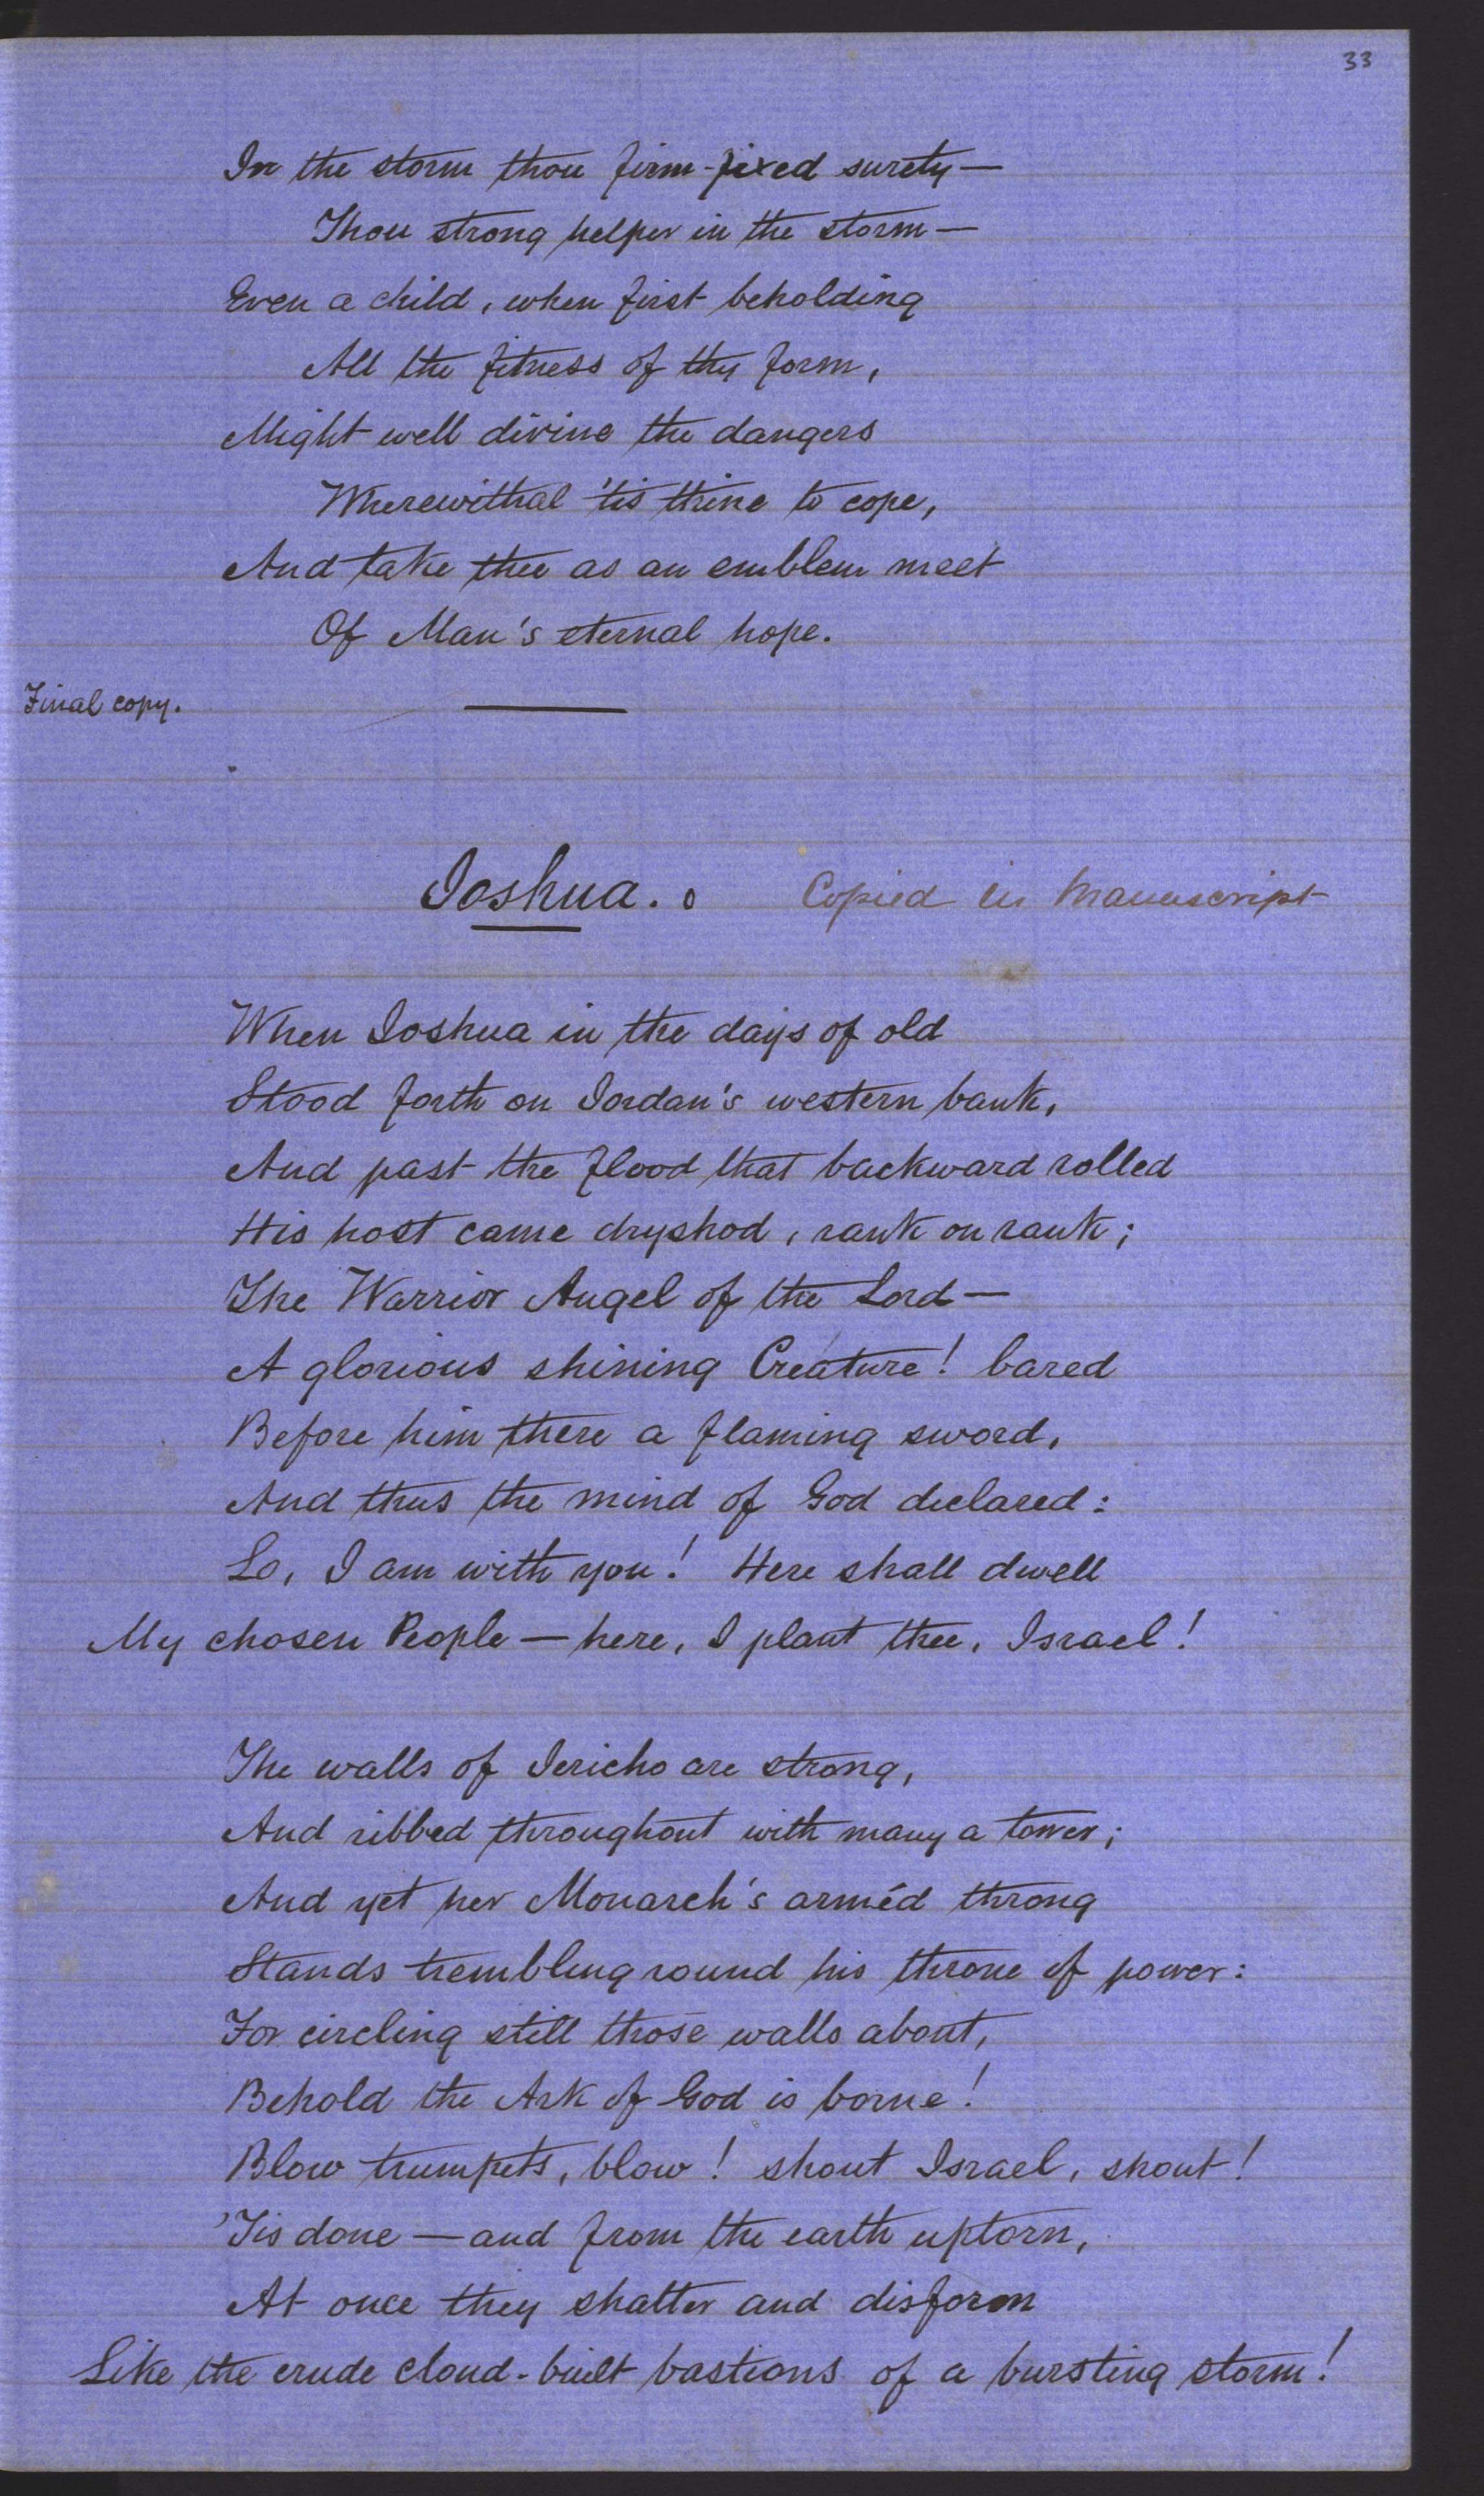 33
In the storm thou firm-fixed surety—
Thou strong helper in the storm—
Even a child, when first beholding
All the fitness of thy form,
Might well divine the dangers
Wherewithal 'tis thine to cope,
And take thee as an emblem meet
Of Man's eternal hope.
Final copy.
Joshua. o Copied in Manuscript
When Joshua in the days of old
Stood forth on Jordan's western bank,
And past the flood that backward rolled
His host came dryshod, rank on rank;
The Warrior Angel of the Lord—
A glorious shining Creature! bared
Before him there a flaming sword,
And thus the mind of God declared:
Lo, I am with you! Here shall dwell
My chosen People—here, I plant thee, Israel!
The walls of Jericho are strong,
And ribbed throughout with many a tower;
And yet her Monarch's arméd throng
Stands trembling round his throne of power:
For circling still those walls about,
Behold the Ark of God is borne!
Blow trumpets, blow! shout Israel, shout!
'Tis done—and from the earth uptorn,
At once they shatter and disform
Like the crude cloud-built bastions of a bursting storm!